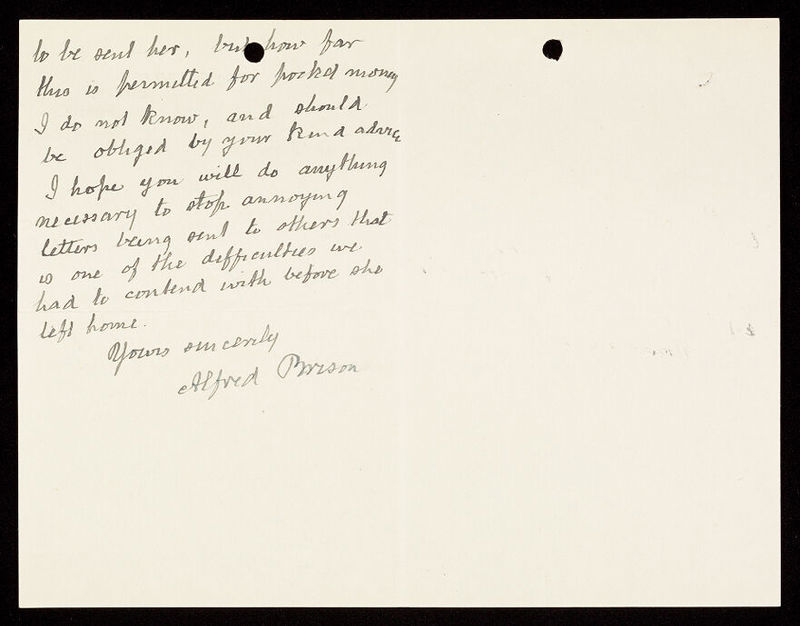 to be sent her, but how far
this is permitted for pocket money
I do not know, and should
be obliged by your kind advice
I hope you will do anything
necessary to stop annoying
letters being sent to others that
is one of the difficulties we
had to contend with before she
left home.
Yours sincerely
Alfred